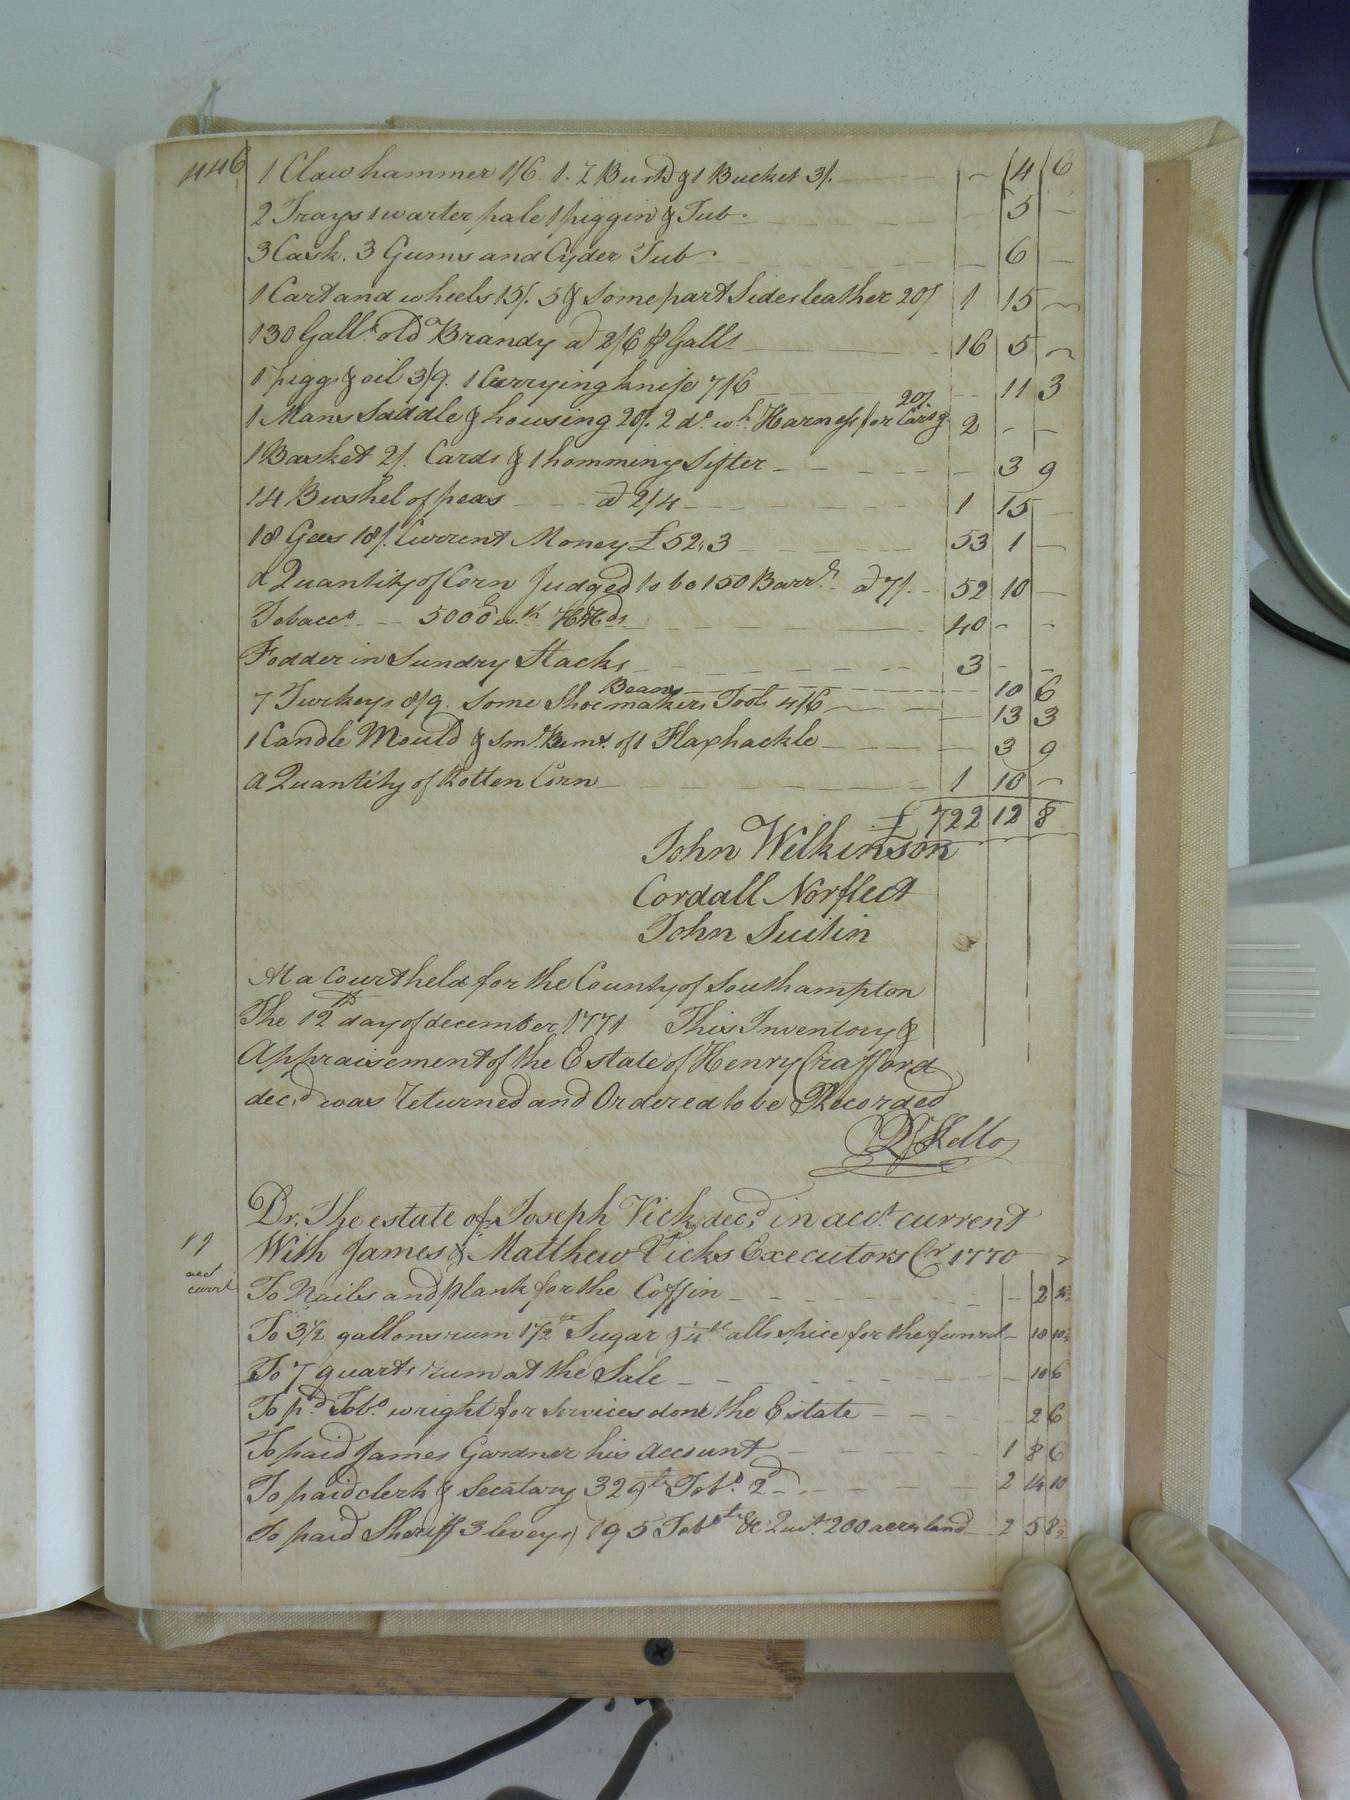 446 1 Claw hammer 1/6. 1. Z Bush & 1 Bucket 3/. - 4 6
2 Trays 1 warter pale 1 piggin & Tub 5 -
3 Cask. 3 Gums and Cyder Tub - 6 -
1 Cart and wheels 15/. 5 & some part sides leather 20/ 1 15 -
130 Galls. old Brandy a 2/6 Galls 16 5 -
1 pigg & oil 3/9. 1 Currying knife 7/6 - 11 3
20/.
1 Mans Saddle & housing 20/. 2 do. wh. Harness for Cart & 2 - -
1 Basket 2/. Cards & 1 homminy Sifter - 3 9
14 Bushel of peas a 2/4 1 15 -
18 Gees 18/. Current Money £52.3 53 1 -
a Quantity of Corn Judged to be 150 Barrs. a 7/. 52 10 -
Tobacco 5000 wth HHds 40 - -
Fodder in Sundry Stacks 3 - -
Beans 10 6
7 Turkeys 8/9. some Shoemakers Tools 4/6 - 13 3
1 Candle Mould & of 1 Flaxhackle - 3 9
a Quantity of Rotten Corn 1 10 -
£ 722 12 8
John Wilkinson
Cordall Norfleet
John
At a Court held for the County of Southampton
The 12th day of december 1771 This Inventory &
Appraisement of the Estate of Henry Crafford
decd. was returned and Ordered to be Recorded
R Kello
Dr. The estate of Joseph Vick, decd. in acct. current
With James & Matthew Vicks Executors Cr 1770
acct
currt
To Nails and plank for the Coffin - 2
To 3½ gallons rum 1½ Sugar & allspice for the funrel - 18 10½
To 7 quarts rum at the Sale - 10 6
To pd. Tobo. wright for services done the Estate 2 6
To paid James Gardner his account 1 8 6
To paid clerk & Secatary 329 Tobo. 2d 2 14 10
To paid Sheriff 3 leveys, 195 Tobo. & Quit. 200 acres land 2 5 8½